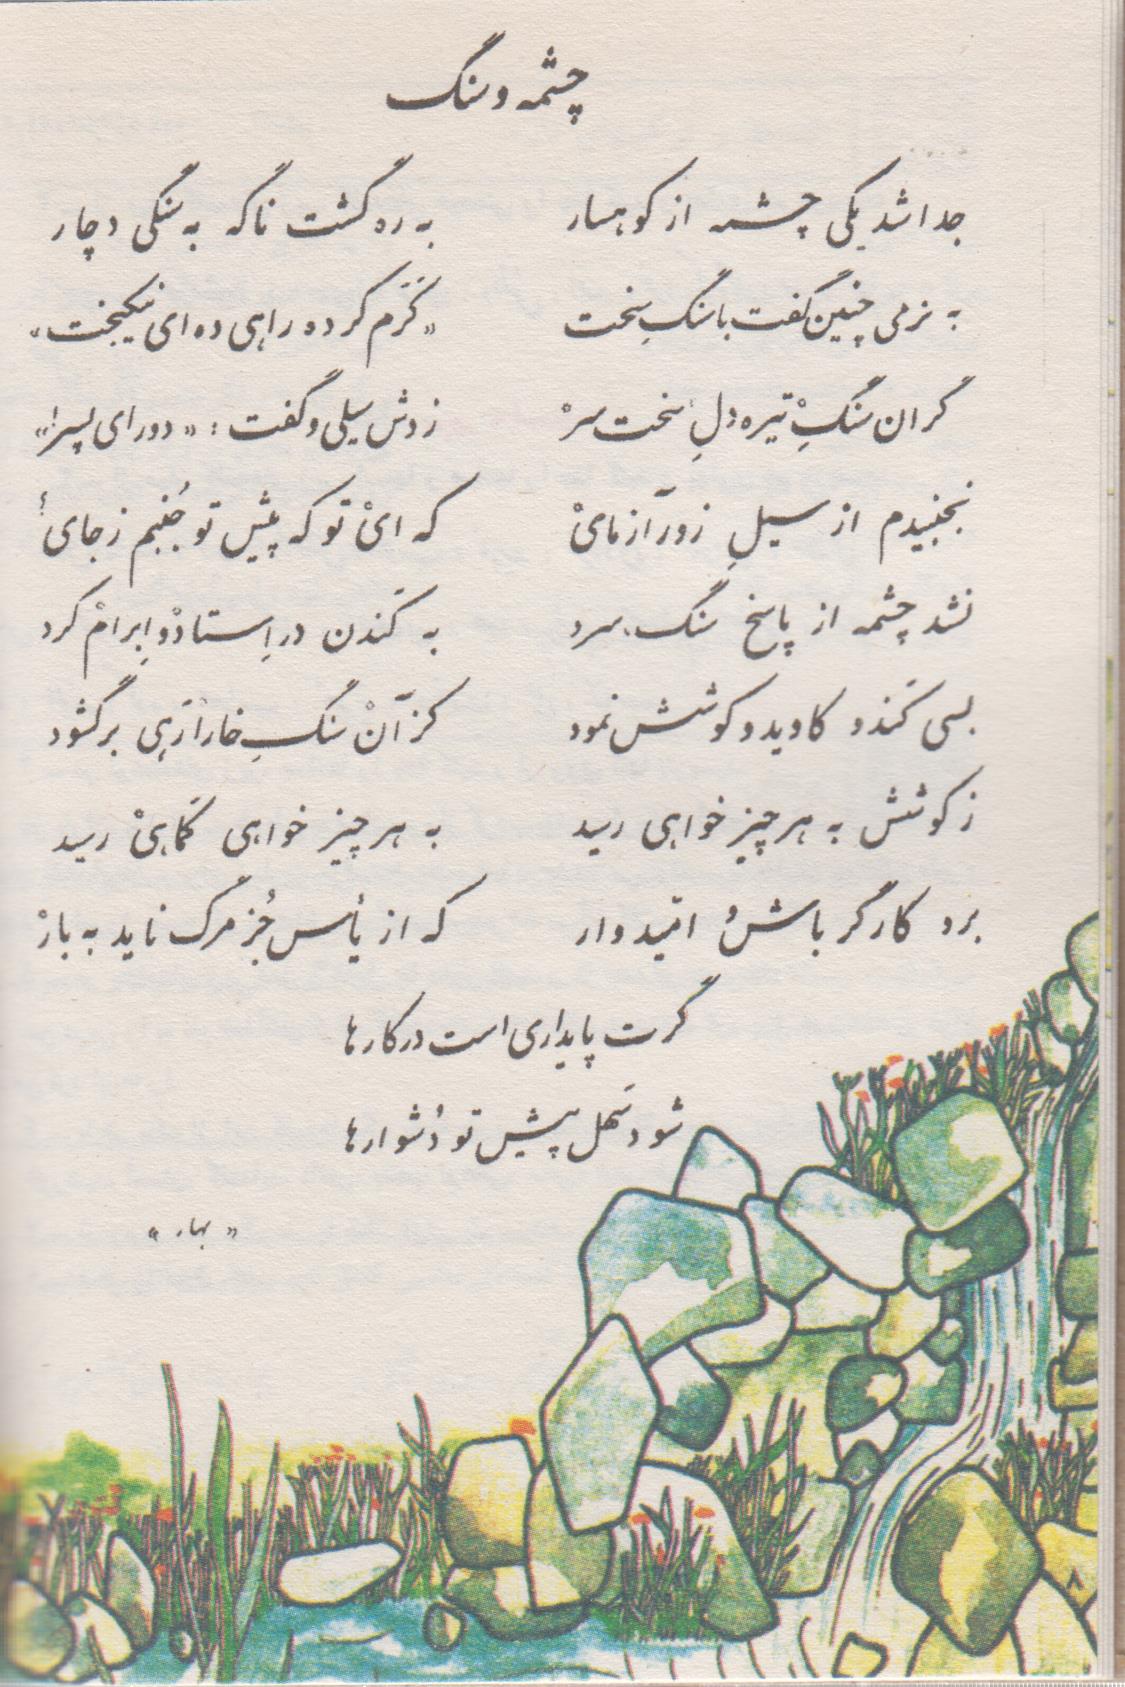 چشمه و سنگ
جدا شد یکی چشمه از کوهسار به ره گشت ناگه به سنگی دچار
به نرمی چنین گفت با سنگِ سخت «کَرَم کرده راهی ده ای نیکبخت»
گران سنگِ تیره دلِ سخت سر زدش سیلی و گفت: «دور ای پسر!»
نجنبیدم از سیلِ زور آزمای که ای تو که پیش تو جُنبم ز جای؟
نشد چشمه از پاسخ سنگ، سرد به کَندن در اِستاد و اِبرام کرد
بسی کَند و کاوید و کوشش نمود کز آن سنگِ خارا رَهی برگشود
ز کوشش به هر چیز خواهی رسید به هر چیز خواهی کَماهی رسید
برو کارگر باش و امیدوار که از یأس جُز مرگ ناید به بار
گرت پایداری است در کارها
شود سَهل پیش تو دُشوارها
«بهار»
۸